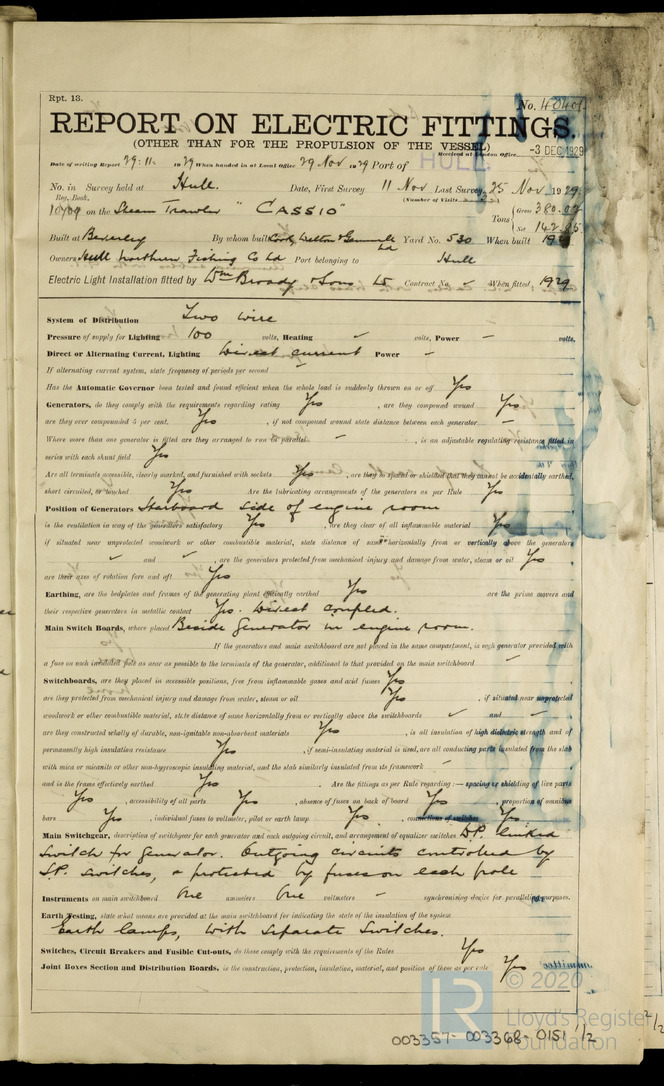 Rpt. 13.
No. 40401
REPORT ON ELECTRIC FITTINGS.
(OTHER THAN FOR THE PROPULSION OF THE VESSEL)
Received at London Office -3 DEC 1929
Date of writing Report 29.11. 1929 When handed in at Local Office 29 Nov 1929 Port of HULL
No. in Survey held at Hull. Date, First Survey 11 Nov Last Survey 25 Nov 1929
Reg. Book. (Number of Visits
on the Steam Trawler "CASSIO" Tons { Gross 380.02
Net 142.85
Built at Beverley By whom built Cook, Welton & Gemmell Ld Yard No. 530 When built 1929
Owners Hull Northern Fishing Co Ld Port belonging to Hull
Electric Light Installation fitted by Wm Broady & Sons Ld Contract No. ✓ When fitted 1929
System of Distribution Two wire
Pressure of supply for Lighting 100 volts, Heating ✓ volts, Power – volts.
Direct or Alternating Current, Lighting Direct current Power –
If alternating current system, state frequency of periods per second
Has the Automatic Governor been tested and found efficient when the whole load is suddenly thrown on or off Yes
Generators, do they comply with the requirements regarding rating Yes , are they compound wound Yes
are they over compounded 5 per cent. Yes , if not compound wound state distance between each generator –
Where more than one generator is fitted are they arranged to run in parallel – , is an adjustable regulating resistance fitted in
series with each shunt field Yes
Are all terminals accessible, clearly marked, and furnished with sockets Yes , are they so spaced or shielded that they cannot be accidentally earthed,
short circuited, or touched Yes Are the lubricating arrangements of the generators as per Rule Yes
Position of Generators Starboard side of engine room
is the ventilation in way of the generators satisfactory Yes , are they clear of all inflammable material Yes
if situated near unprotected woodwork or other combustible material, state distance of same horizontally from or vertically above the generators
✓ and ✓ , are the generators protected from mechanical injury and damage from water, steam or oil Yes
are their axes of rotation fore and aft Yes
Earthing, are the bedplates and frames of the generating plant efficiently earthed Yes are the prime movers and
their respective generators in metallic contact Yes. Direct Coupled.
Main Switch Boards, where placed Beside Generator in engine room.
If the generators and main switchboard are not placed in the same compartment, is each generator provided with
a fuse on each insulated pole as near as possible to the terminals of the generator, additional to that provided on the main switchboard –
Switchboards, are they placed in accessible positions, free from inflammable gases and acid fumes Yes
are they protected from mechanical injury and damage from water, steam or oil Yes , if situated near unprotected
woodwork or other combustible material, state distance of same horizontally from or vertically above the switchboards ✓ and –
are they constructed wholly of durable, non-ignitable non-absorbent materials Yes , is all insulation of high dielectric strength and of
permanently high insulation resistance Yes , if semi-insulating material is used, are all conducting parts insulated from the slab
with mica or micanite or other non-hygroscopic insulating material, and the slab similarly insulated from its framework –
and is the frame effectively earthed Yes . Are the fittings as per Rule regarding :— spacing or shielding of live parts
Yes , accessibility of all parts Yes , absence of fuses on back of board Yes , proportion of omnibus
bars Yes , individual fuses to voltmeter, pilot or earth lamp Yes , connections of switches Yes
Main Switchgear, description of switchgear for each generator and each outgoing circuit, and arrangement of equalizer switches D.P. linked
switch for generator. Outgoing circuits controlled by
S.P. switches, & protected by fuses on each pole
Instruments on main switchboard One ammeters One voltmeters – synchronising device for paralleling purposes.
Earth Testing, state what means are provided at the main switchboard for indicating the state of the insulation of the system
Earth lamps, with separate switches.
Switches, Circuit Breakers and Fusible Cut-outs, do these comply with the requirements of the Rules Yes
Joint Boxes Section and Distribution Boards, is the construction, protection, insulation, material, and position of these as per rule Yes
LR
© 2020
Lloyd's Register
Foundation
003357- 003368- 0151 1/2